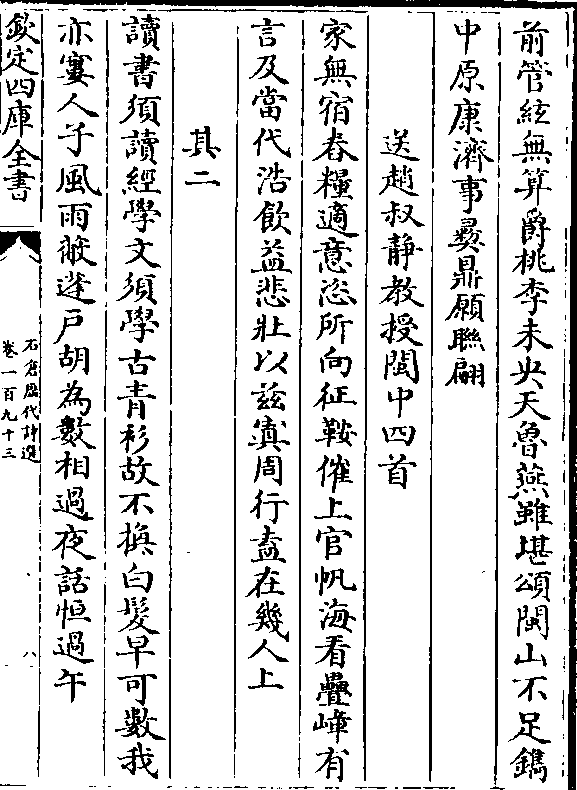 前管絃無算爵桃李未央天魯燕雖堪頌閩山不足鐫
中原康濟事彛鼎願聯翩
送趙叔静教授閩中四首
家無宿舂糧適意恣所向征鞍催上官帆海看疊嶂有
言及當代浩飲益悲壯以兹寘周行盍在幾人上
其二
讀書須讀經學文須學古青衫故不換白髮早可數我
亦寠人子風雨敝蓬户胡為數相過夜話恒過午
欽定四庫全書
石倉歴代詩選
卷一百九十三
八